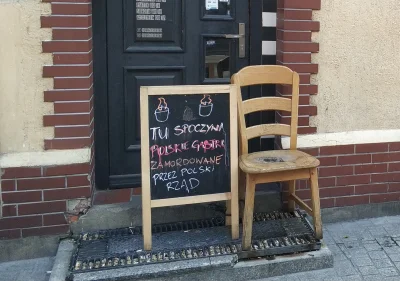 TU SPOCZYWA
POLSKIE GASTRO
ZAMORDOWANE
PRZEZ POLSKI
RZĄD